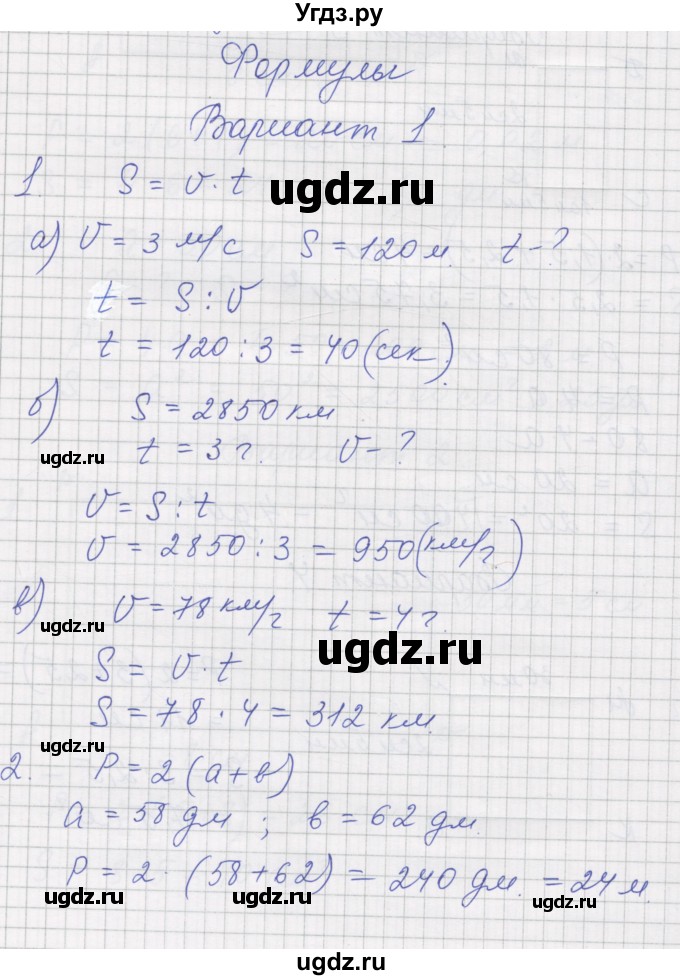 Угдз.ру
Формулы
Вариант 1.
1. S = v · t
ugdz.ru
а) v = 3 м/с S = 120 м. t - ?
t = S : v
t = 120 : 3 = 40 (сек.)
б) S = 2850 км
ugdz.ru
t = 3 г. v - ?
v = S : t
v = 2850 : 3 = 950 (км/г.)
в) v = 78 км/г t = 4 г.
ugdz.ru
ugdz.ru
S = v · t
S = 78 · 4 = 312 км.
ugdz.ru
2. P = 2 (а + в)
а = 58 дм ; в = 62 дм.
P = 2 · (58 + 62) = 240 дм. = 24 м.
ugdz.ru ugdz.ru ugdz.ru
ugdz.ru